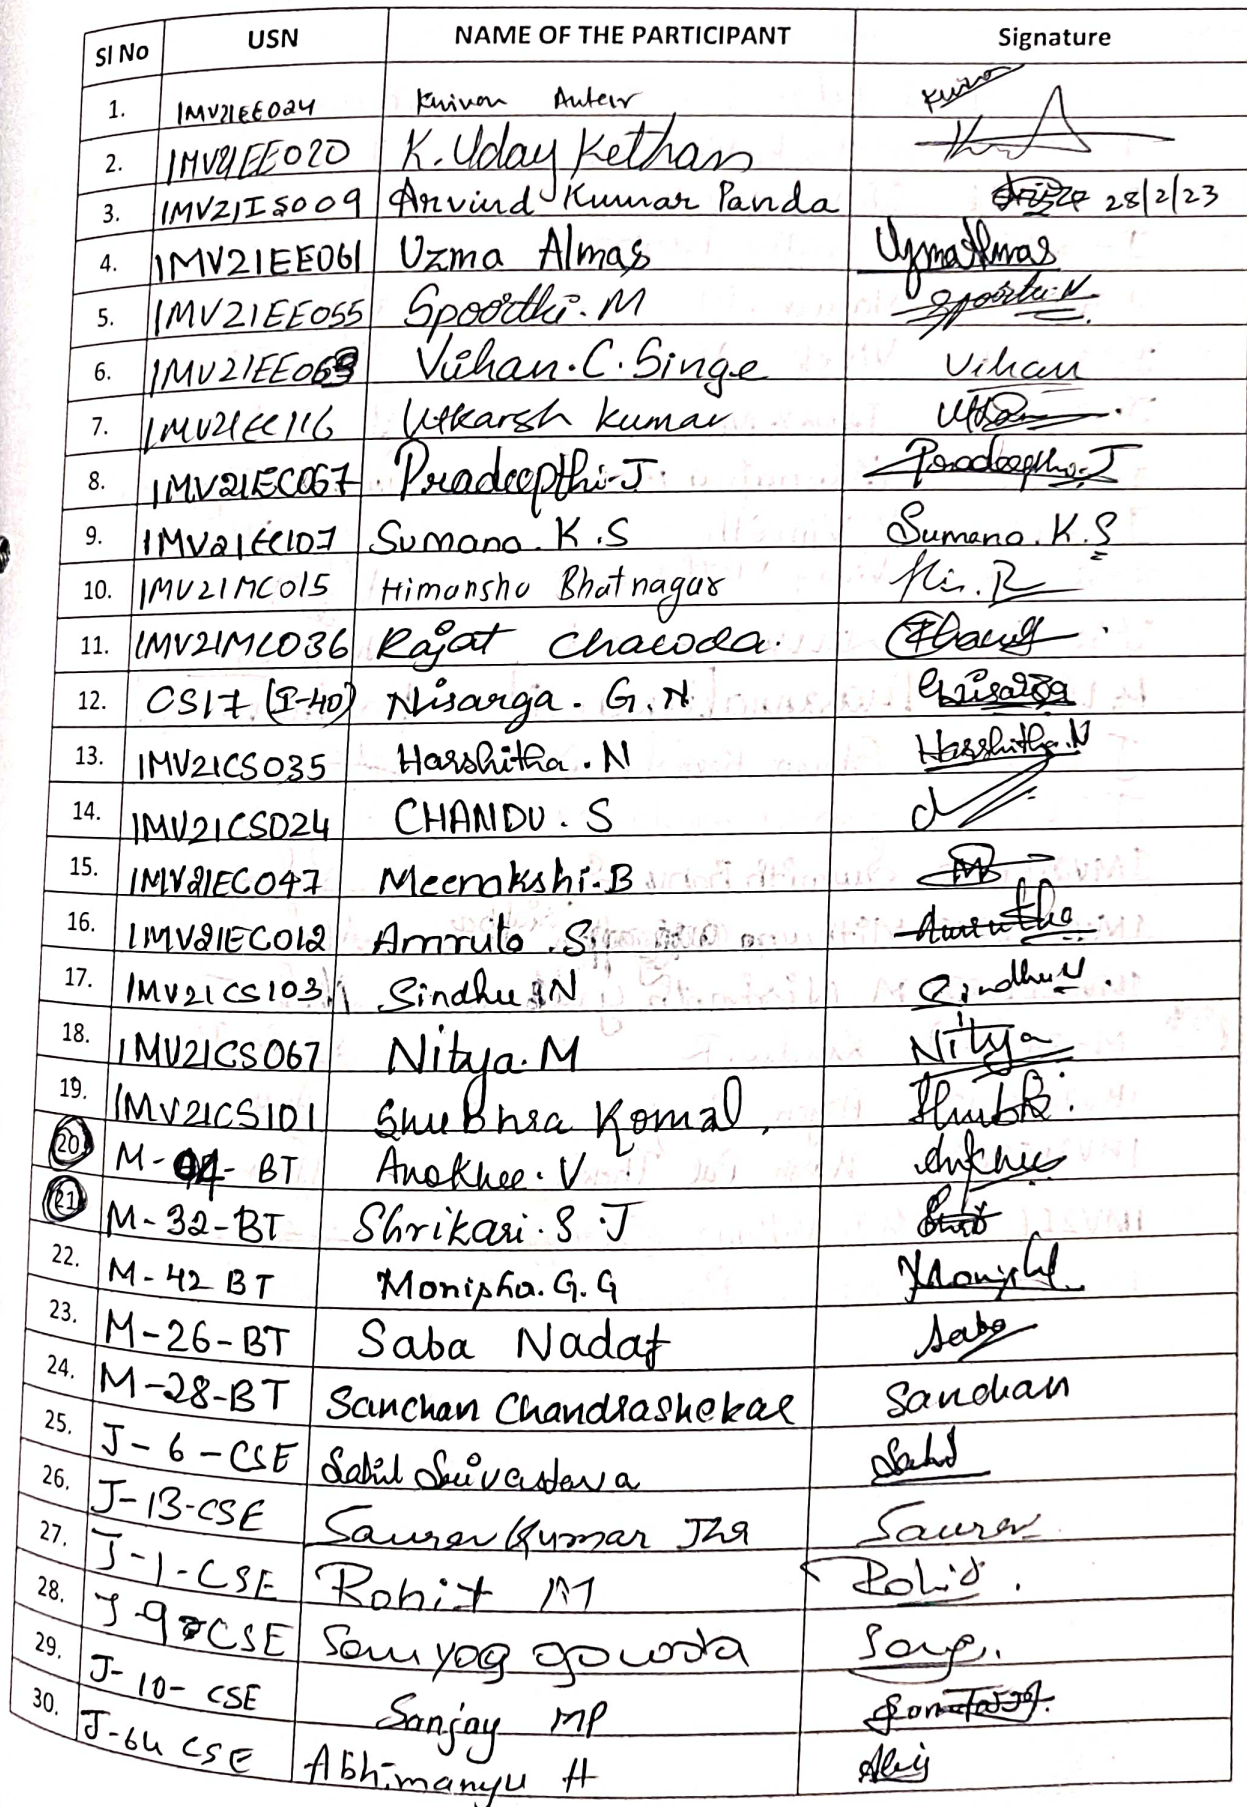 Sl No USN NAME OF THE PARTICIPANT Signature
1. 1MV21EE024
2. 1MV21EE020 K. Uday Kethan
3. 1MV21IS009 Arvind Kumar Panda 28/2/23
4. 1MV21EE061 Uzma Almas Uzma Almas
5. 1MV21EE055 Spoorthi. M Spoorthi.
6. Vihan. C. Singe Vihan
7. 1MV21EC116 Utkarsh Kumar
8. 1MV21EC067 Pradeepthi-J Pradeepthi-J
9. 1MV21EC107 Sumana. K.S Sumana. K.S
10. 1MV21MC015 Himanshu Bhatnagar
11. 1MV21MC036 Rajat Chacoda.
12. CS17 (I-40) Nisarga. G.N
13. 1MV21CS035 Harshitha. N Harshitha.N
14. 1MV21CS024 CHANDU. S
15. 1MV21EC047 Meenakshi.B
16. 1MV21EC012 Amruta .S Amrutha
17. 1MV21CS103 Sindhu N Sindhu.N
18. 1MV21CS067 Nitya.M Nitya
19. 1MV21CS101 Shubhra Komal.
20 M-04-BT Anokhee.V
21 M-32-BT Shrikari.S.J
22. M-42 BT Monisha.G.G
23. M-26-BT Saba Nadaf Saba
24. M-28-BT Sanchan Chandrashekar Sanchan
25. J-6-CSE Sahil Srivastava Sahil
26. J-13-CSE Saurav Kumar Jha Saurav
27. J-1-CSE Rohit M Rohit.
28. CSE Samyog gowda
29. J-10-CSE Sanjay MP
30. J-64 CSE Abhimanyu H